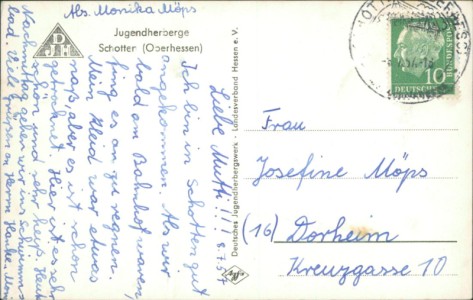 Abs. Monika Möps
DJH
Jugendherberge
Schotten (Oberhessen)
8.7.57
Liebe Mutti!!!
Ich bin in Schotten gut
angekommen. Als wir
bald am Bahnhof waren,
fing es an zu regnen.
Mein Kleid war etwas
naß, aber es ist schon
getrocknet. Hier ist es sehr
schön und sehr heiß. Heute
Nachmittag gehen wir ins Schwimm-
bad. Viele Grüße an Herrn
Deutsches Jugendherbergswerk - Landesverband Hessen e. V.
DEUTSCHE BUNDESPOST
10
Frau
Josefine Möps
(16) Dorheim
Kreuzgasse 10